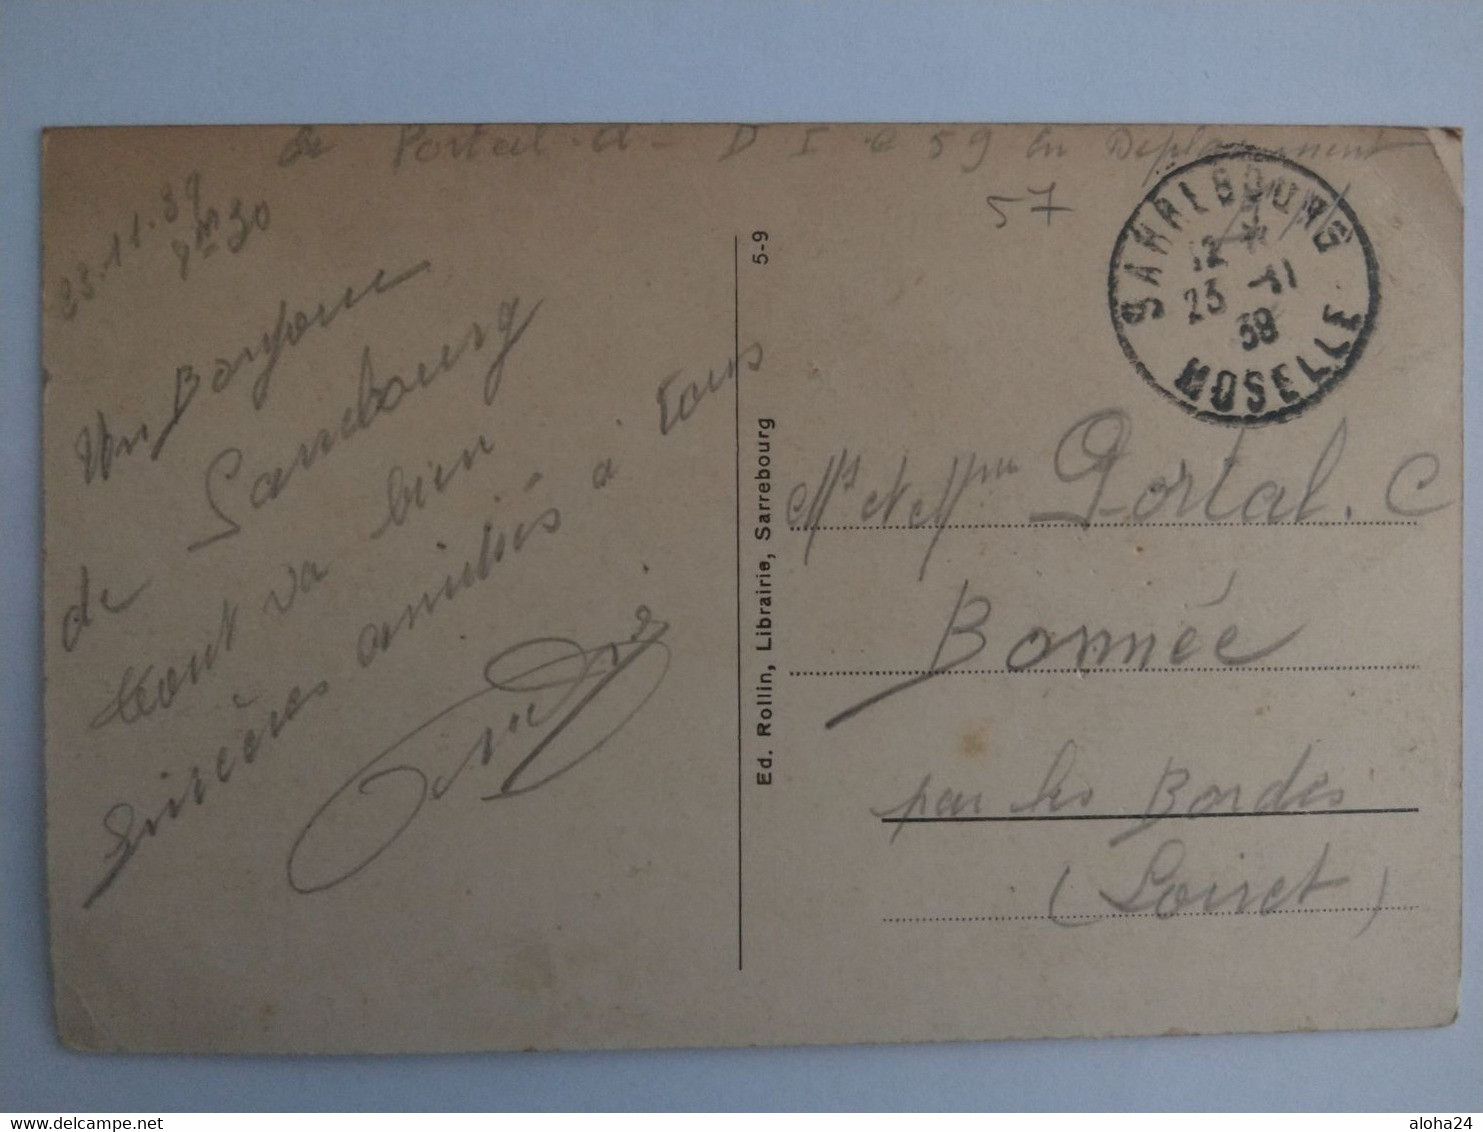 de Portal. A - D I e 59 En Deplacement
57
23.11.39
8h 30
Un Bonjour
de Sarrebourg
tout va bien
Sincères amitiés à tous
5-9
Ed. Rollin, Librairie, Sarrebourg
SARREBOURG
12 H
23 -11
39
MOSELLE
Mr et Mme Portal. C
Bonnée
par les Bordes
(Loiret)
www.delcampe.net
aloha24